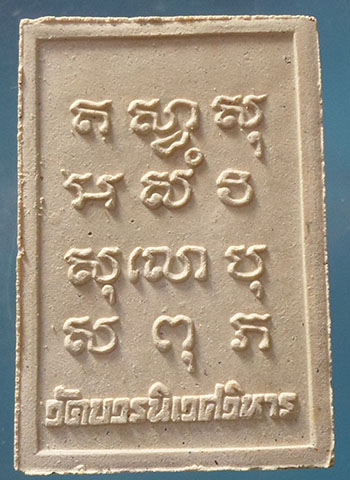 ត សុ
អ សំ វ
សុ លោ បុ
ស ពុ ភ
วัดบวรนิเวศวิหาร